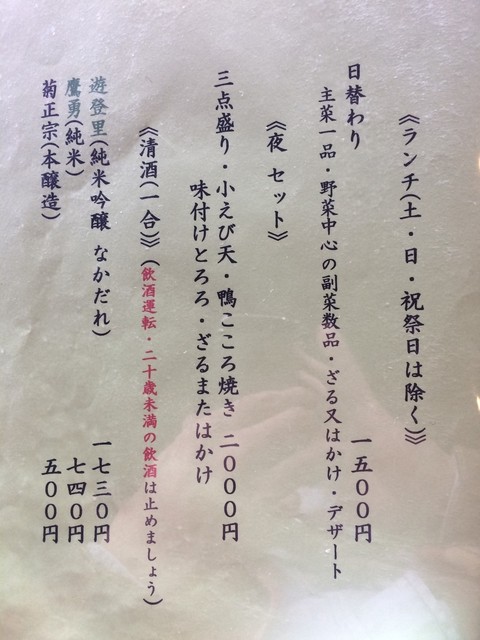 《ランチ(土・日・祝祭日は除く)》
日替わり 一五〇〇円
主菜一品・野菜中心の副菜数品・ざる又はかけ・デザート
《夜 セット》
三点盛り・小えび天・鴨こころ焼き 二〇〇〇円
味付けとろろ・ざるまたはかけ
《清酒(一合)》(飲酒運転・二十歳未満の飲酒は止めましょう)
遊登里(純米吟醸 なかだれ) 一七三〇円
鷹勇(純米) 七四〇円
菊正宗(本醸造) 五〇〇円